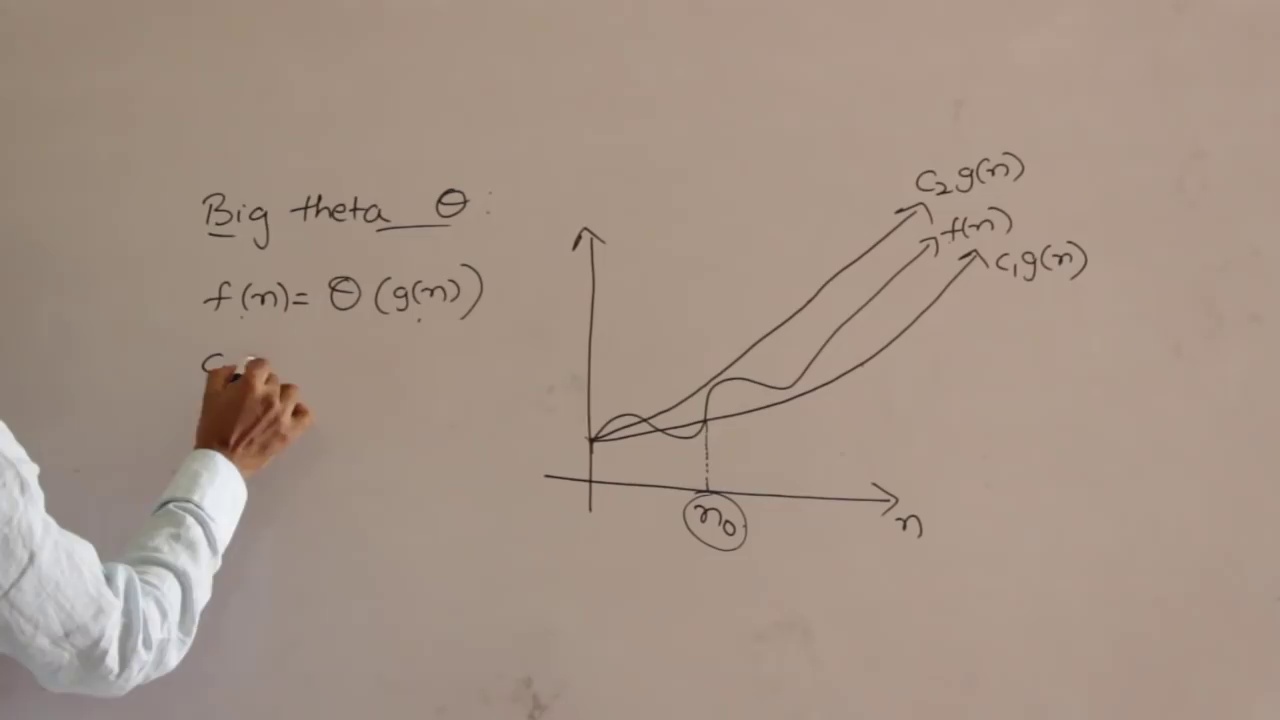 Big theta θ :
f(n) = θ (g(n))
C
C₂ g(n)
f(n)
C₁ g(n)
n₀
n